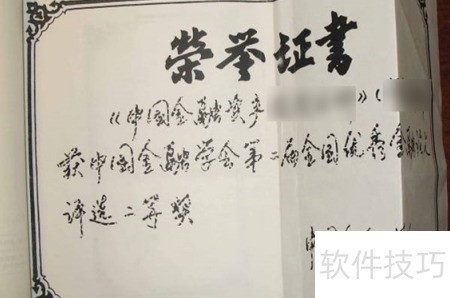 荣誉证书
《中国金融资产》(
获中国金融学会第二届全国优秀金融论文
评选二等奖
软件技巧